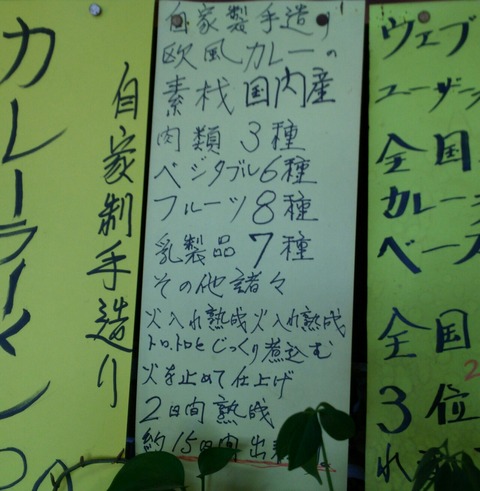 カレーライス
自家制手造り
自家製手造り
欧風カレーの
素材国内産
肉類3種
ベジタブル6種
フルーツ8種
乳製品7種
その他諸々
火入れ熟成火入れ熟成
トロトロとじっくり煮込む
火を止めて仕上げ
2日間熟成
約15日間出来
ウェブ
ユーザー
全国
カレー
ベース
全国
3位
れ